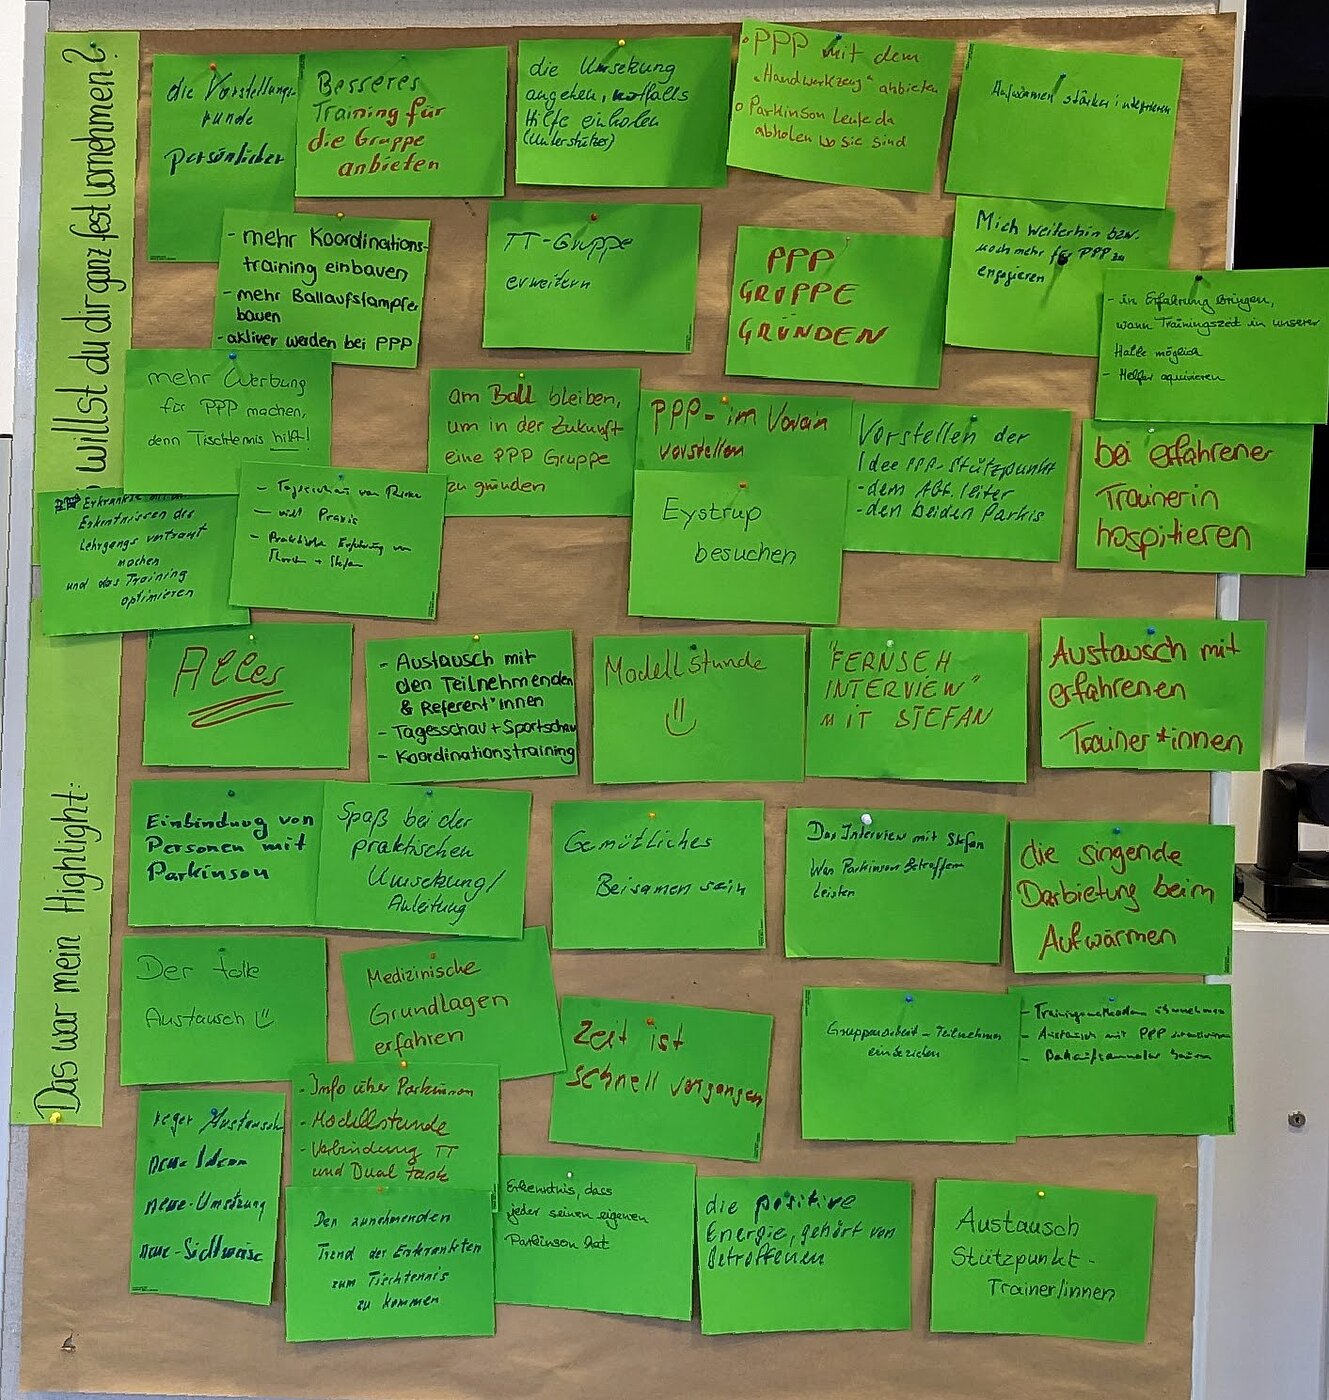 willst du dir ganz fest vornehmen?
die Vorstellungs-
runde
persönlicher
Besseres
Training für
die Gruppe
anbieten
die Umsetzung
angehen, notfalls
Hilfe einholen
(Unterstützer)
PPP mit dem
"Handwerkzeug" anbieten
Parkinson Leute da
abholen wo sie sind
Aufwärmen stärker integrieren
- mehr Koordinations-
training einbauen
- mehr Ballaufstampfer
bauen
- aktiver werden bei PPP
TT-Gruppe
erweitern
PPP
GRUPPE
GRÜNDEN
Mich weiterhin bzw.
noch mehr für PPP zu
engagieren
- in Erfahrung bringen,
wann Trainingszeit in unserer
Halle möglich
- Helfer aquirieren
mehr Werbung
für PPP machen,
denn Tischtennis hilft!
am Ball bleiben,
um in der Zukunft
eine PPP Gruppe
zu gründen
PPP - im Verein
vorstellen
Vorstellen der
Idee PPP-Stützpunkt
- dem Abt. leiter
- den beiden Parkis
bei erfahrener
Trainerin
hospitieren
Erkrankte mit
Erkentnissen des
Lehrgangs vertraut
machen
und das Training
optimieren
- Tagesschau von
- viel Praxis
- Praktische Erfahrung von
+ Stefan
Eystrup
besuchen
Das war mein Highlight:
Alles
- Austausch mit
den Teilnehmenden
& Referent*innen
- Tagesschau + Sportschau
- Koordinationstraining
Modellstunde
"FERNSEH
INTERVIEW"
MIT STEFAN
Austausch mit
erfahrenen
Trainer*innen
Einbindung von
Personen mit
Parkinson
Spaß bei der
praktischen
Umsetzung/
Anleitung
Gemütliches
Beisamen sein
Das Interview mit Stefan
Was Parkinson Betroffene
leisten
die singende
Darbietung beim
Aufwärmen
Der tolle
Austausch
Medizinische
Grundlagen
erfahren
Zeit ist
schnell vergangen
Gruppenarbeit - Teilnehmer
einbeziehen
- Trainingsmethoden übernehmen
- Austausch mit PPP
-
reger Austausch
neue Ideen
neue-Umsetzung
neue-Sichtweise
- Info über Parkinson
- Modellstunde
- Verbindung TT
und Dual task
Den zunehmenden
Trend der Erkrankten
zum Tischtennis
zu kommen
Erkenntnis, dass
jeder seinen eigenen
Parkinson hat
die positive
Energie, gehört von
Betroffenen
Austausch
Stützpunkt-
Trainer/innen